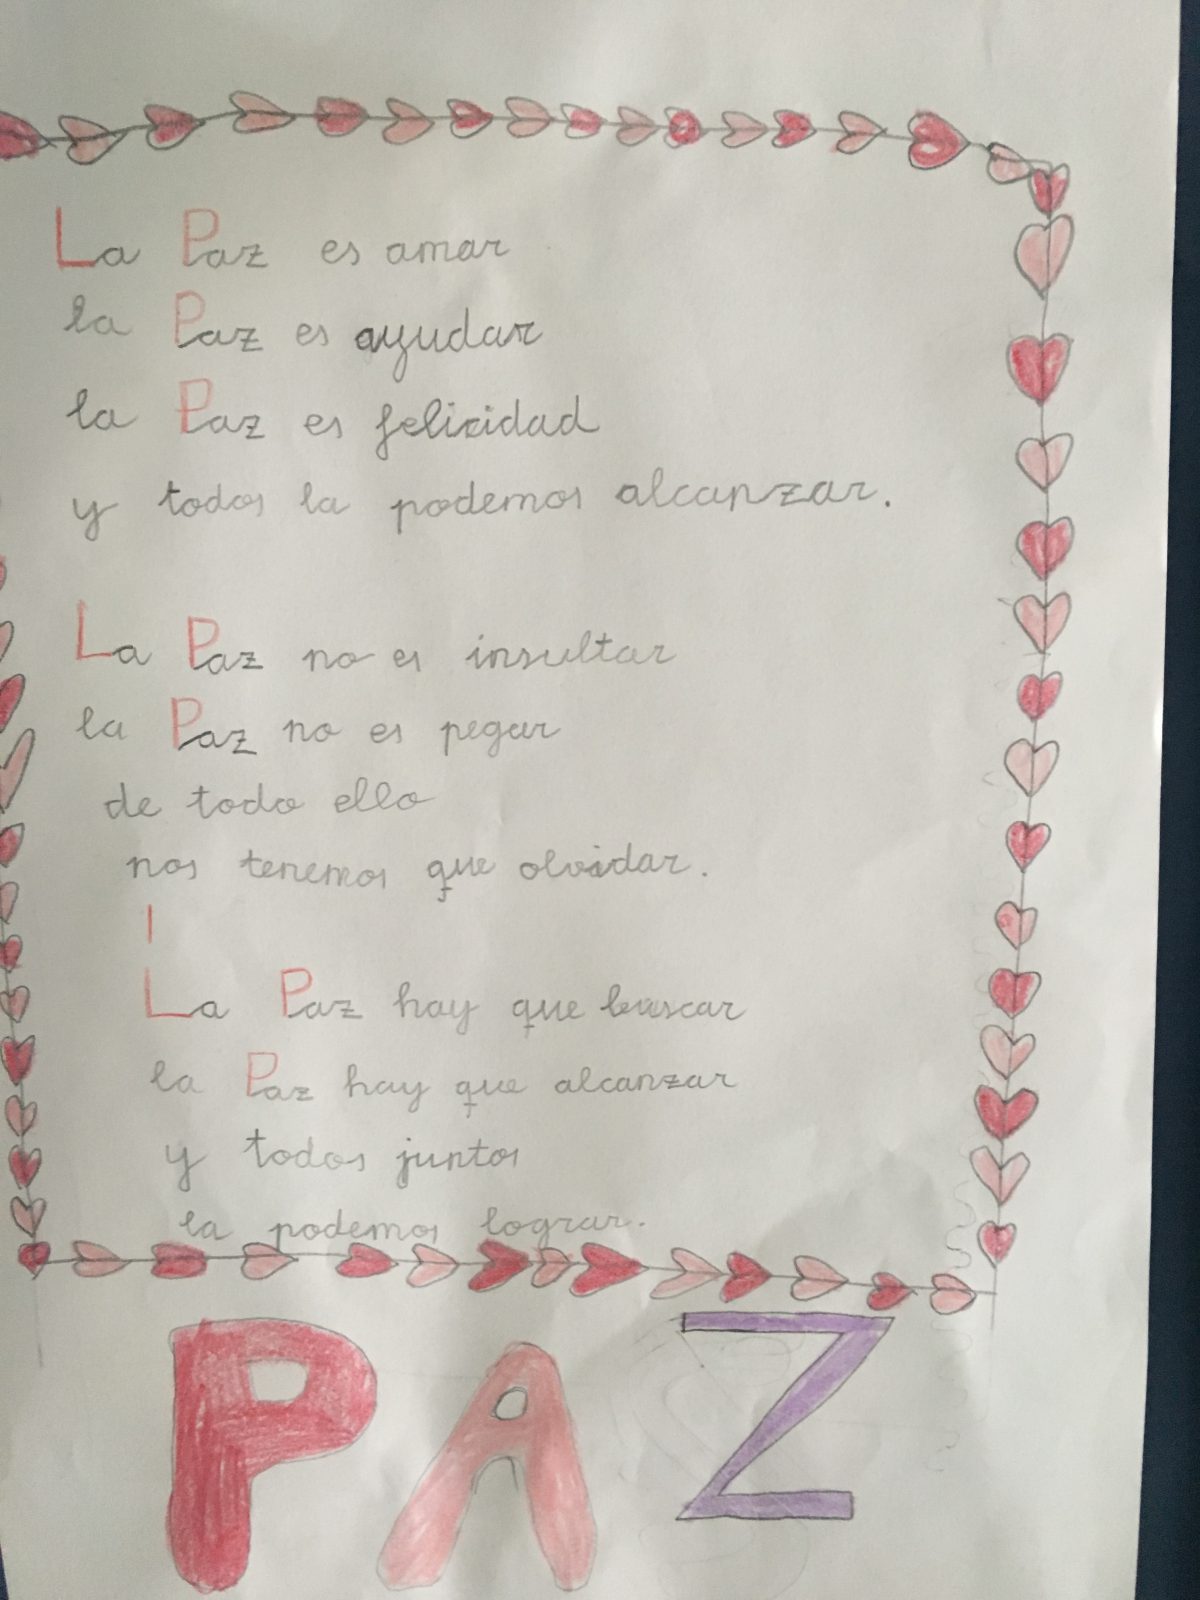 La Paz es amar
la Paz es ayudar
la Paz es felicidad
y todos la podemos alcanzar.
La Paz no es insultar
la Paz no es pegar
de todo ello
nos tenemos que olvidar.
La Paz hay que buscar
la Paz hay que alcanzar
y todos juntos
la podemos lograr.
PAZ